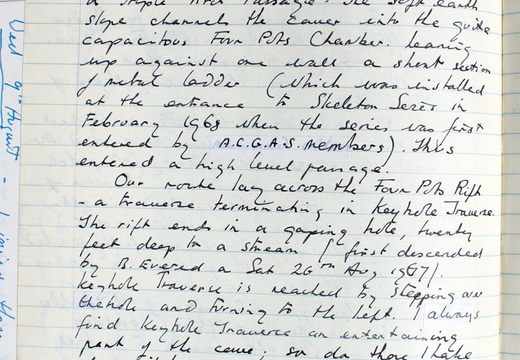 a simple passage. The soft earth
slope channels the caver into the quite
capacitous Four Pots Chamber. Leaning
up against one wall a short section
of metal ladder (which was installed
at the entrance to Skeleton Series in
February 1968 when the series was first
entered by A.C.G.A.S. members). Thus
entered a high level passage.
Our route lay across the Four Pots Rift
- a traverse terminating in Keyhole Traverse.
The rift ends in a gaping hole, twenty
feet deep to a stream (first descended
by B. Evered on Sat 26th Aug 1967).
Keyhole Traverse is reached by stepping over
the hole and turning to the left. I always
find Keyhole Traverse an entertaining
part of the cave; so do those
Wed 9th August -